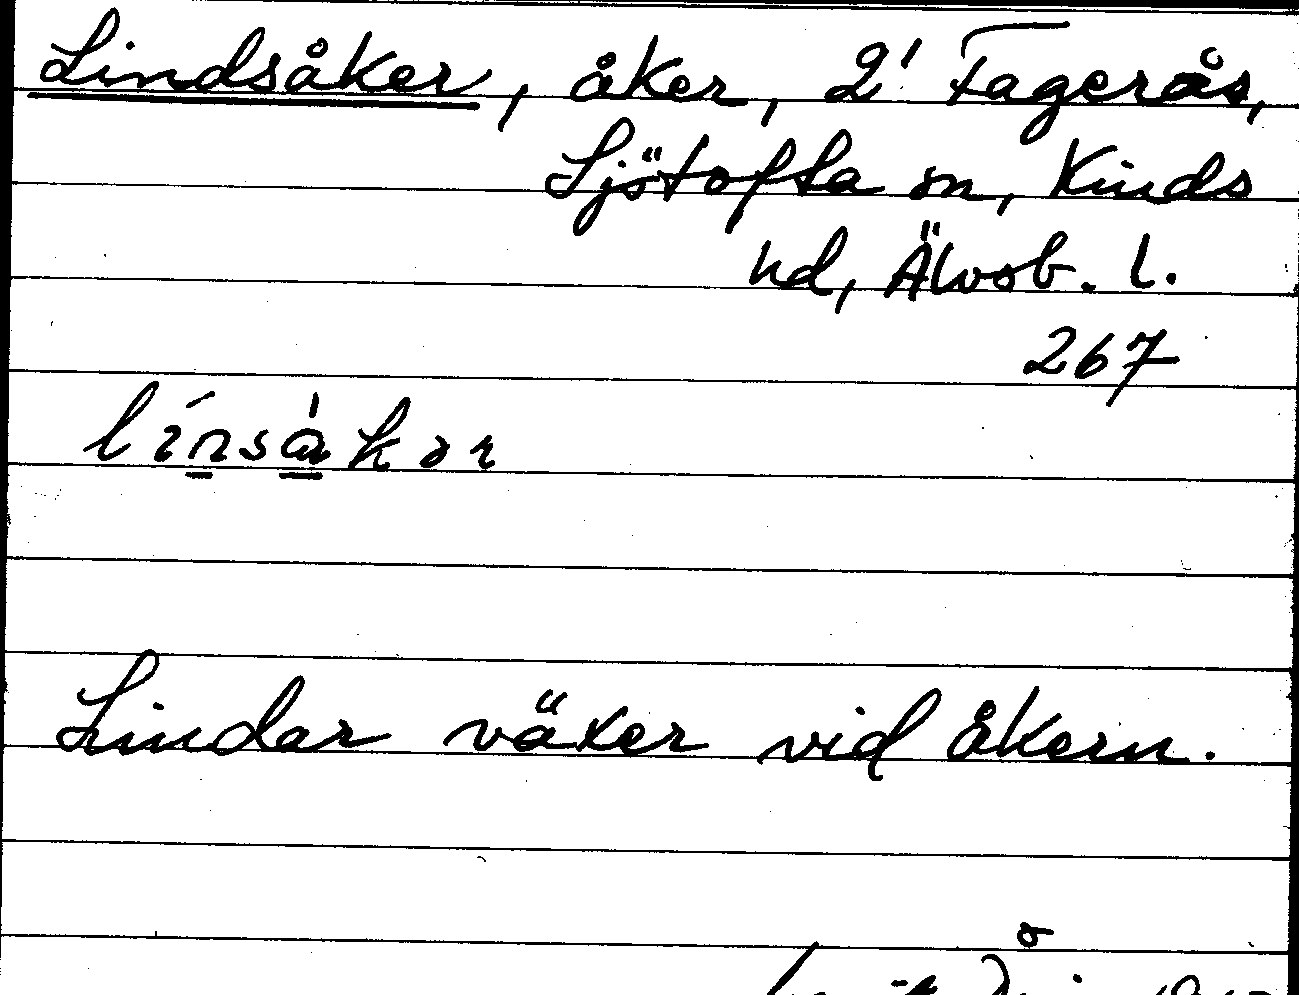 Lindsåker, åker, 2' Fagerås,
Sjötofta sn, Kinds
hd, Älvsb. l.
267
línsàkər
Lindar växer vid åkern.